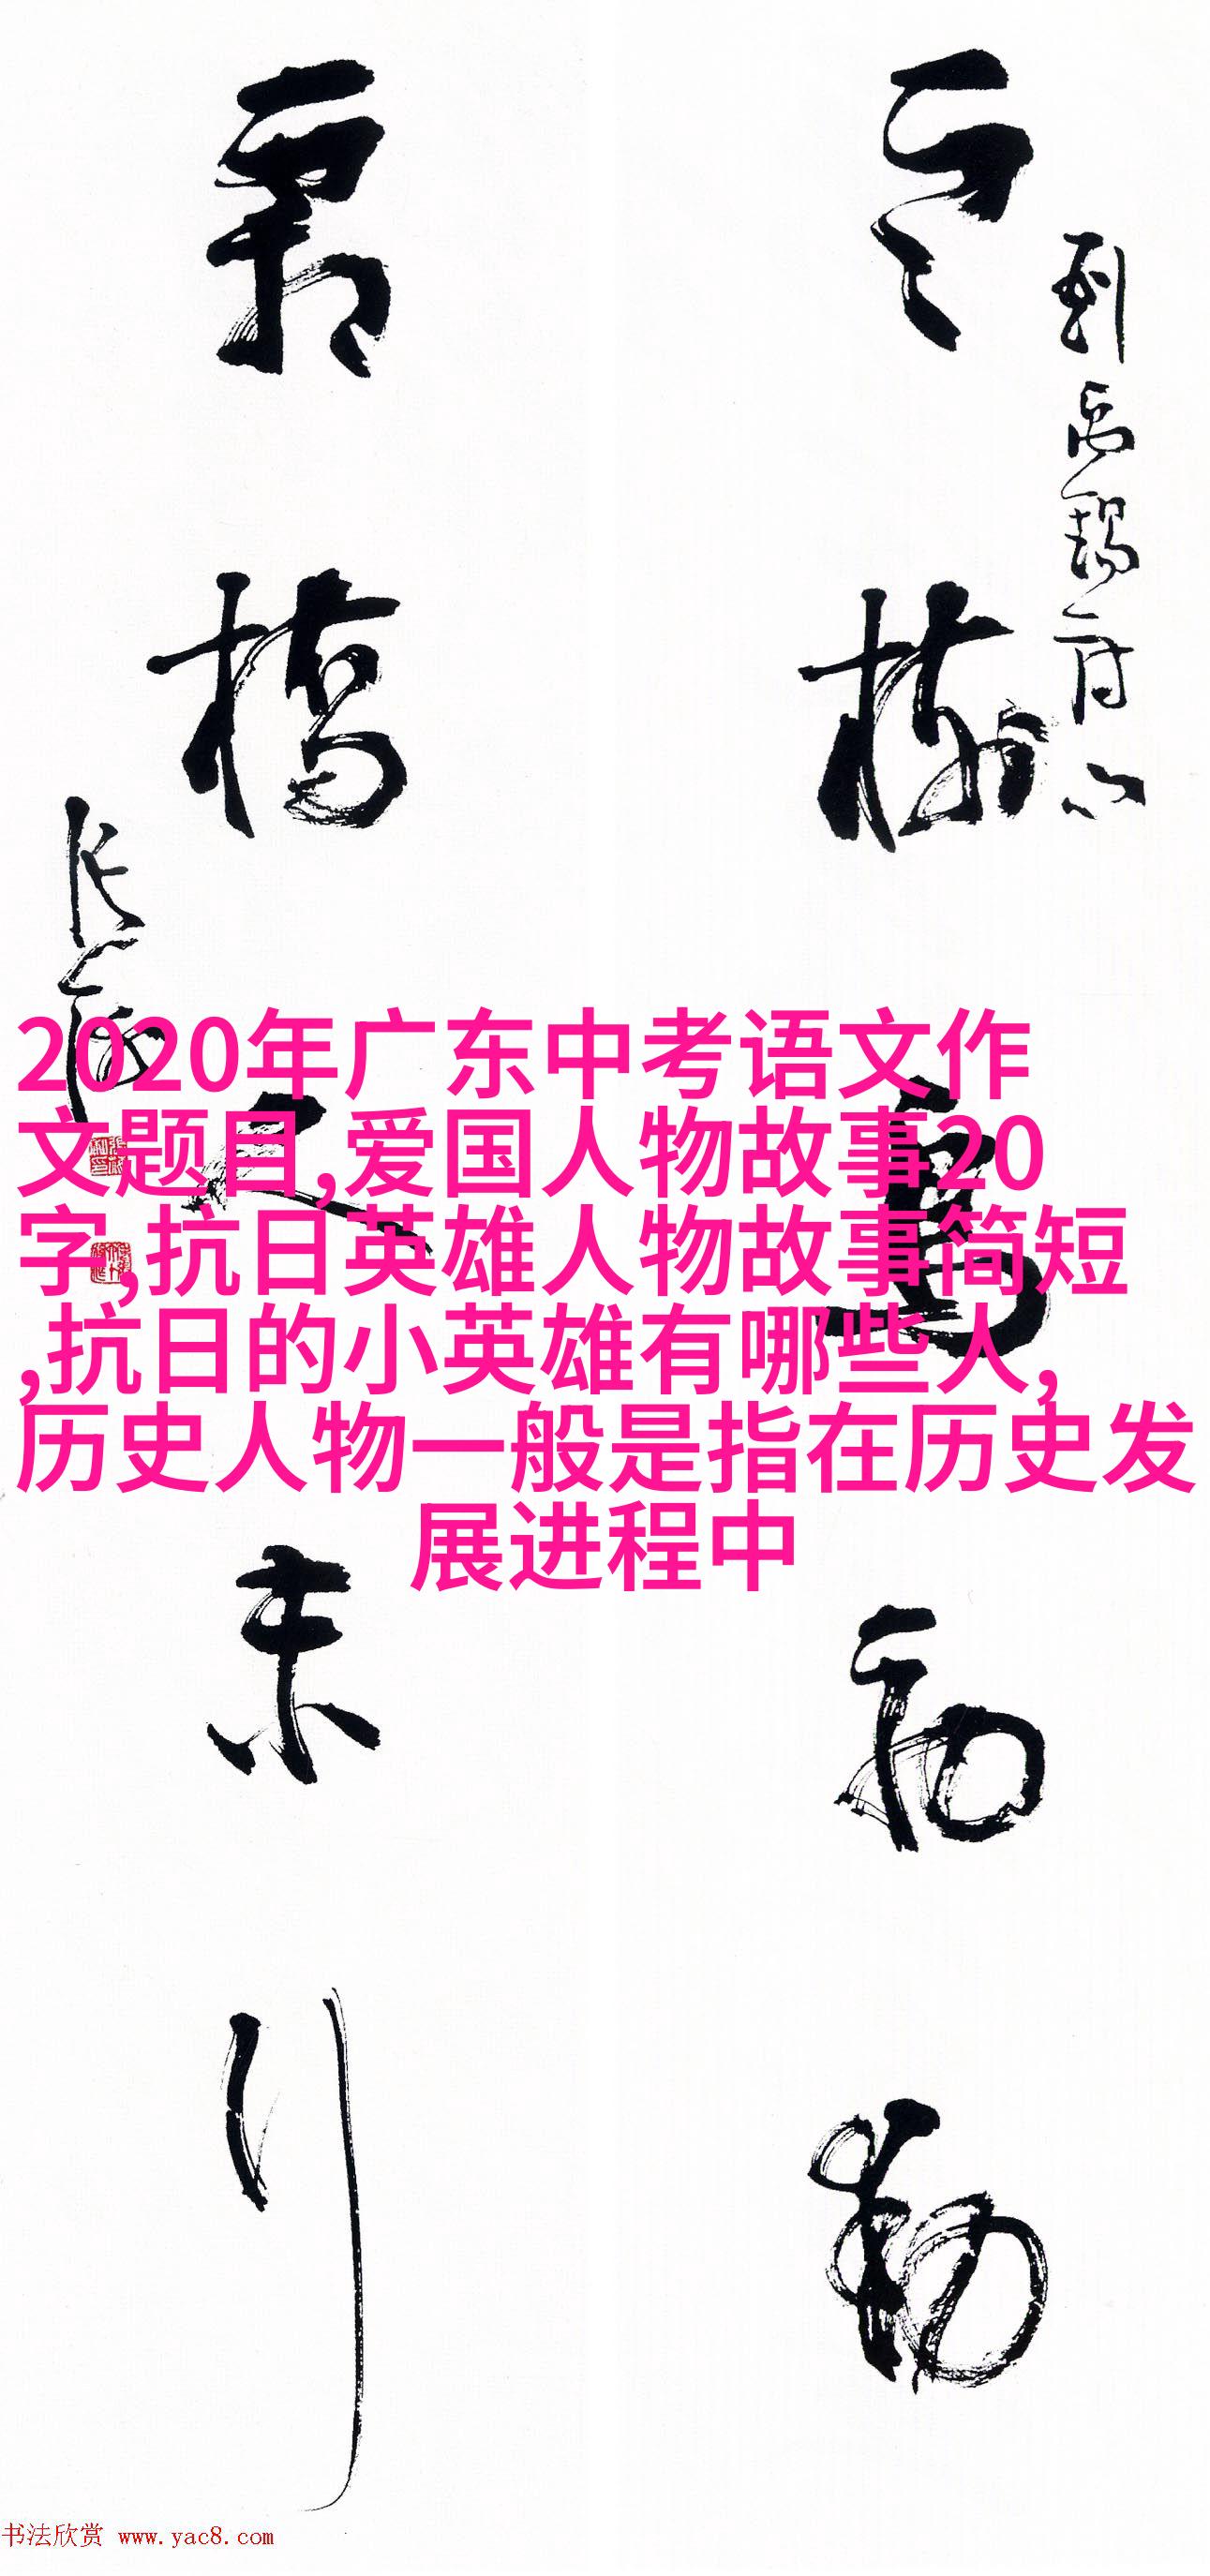 寒樹鳥初動
劉禹錫
霜橋人未行
2020年广东中考语文作
文题目,爱国人物故事20
字,抗日英雄人物故事简短
,抗日的小英雄有哪些人,
历史人物一般是指在历史发
展进程中
书法欣赏 www.yac8.com